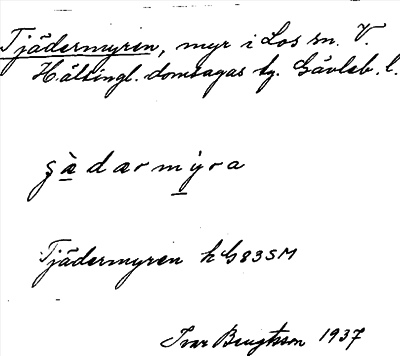 Tjädermyren, myr i Los sn. V.
Hälsingl. domsagas tg. Gävleb. l.
ş̀ä̀darmỳra
Tjädermyren k G83SM
Ivar Bengtsson 1937